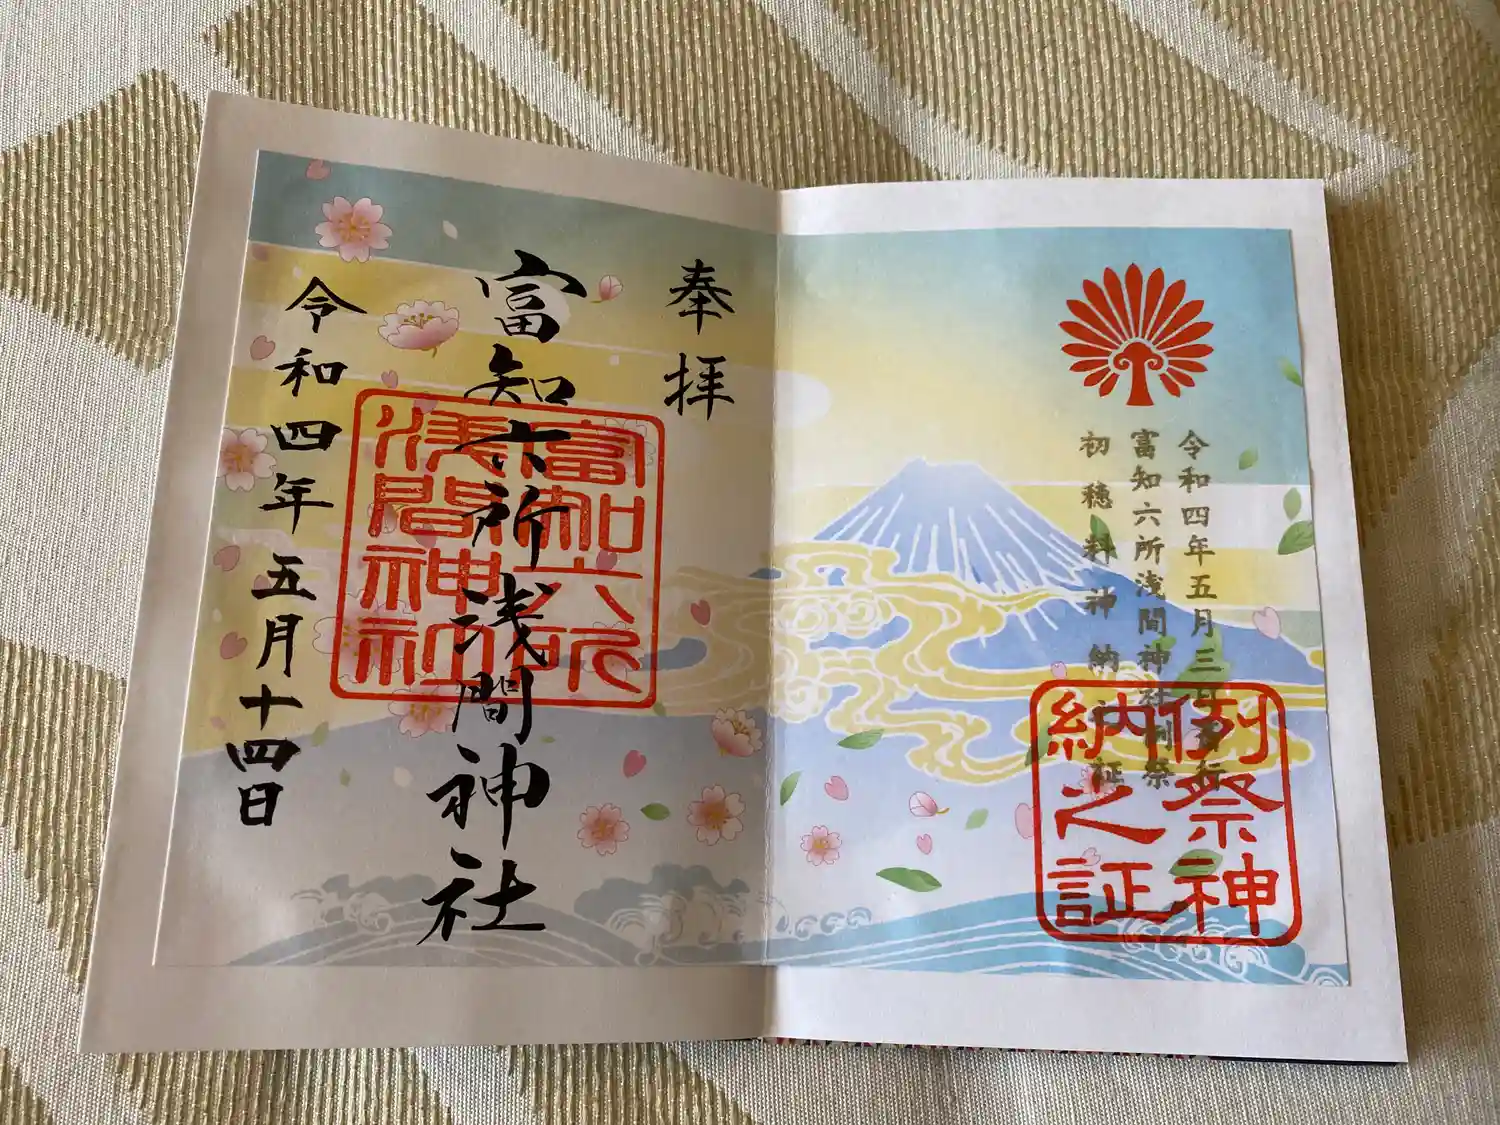 令和四年五月三日斎行
富知六所浅間神社例祭
初穂料神納之証
例祭神
納之証
奉拝
富知六所浅間神社
富知六所
浅間神社
令和四年五月十四日